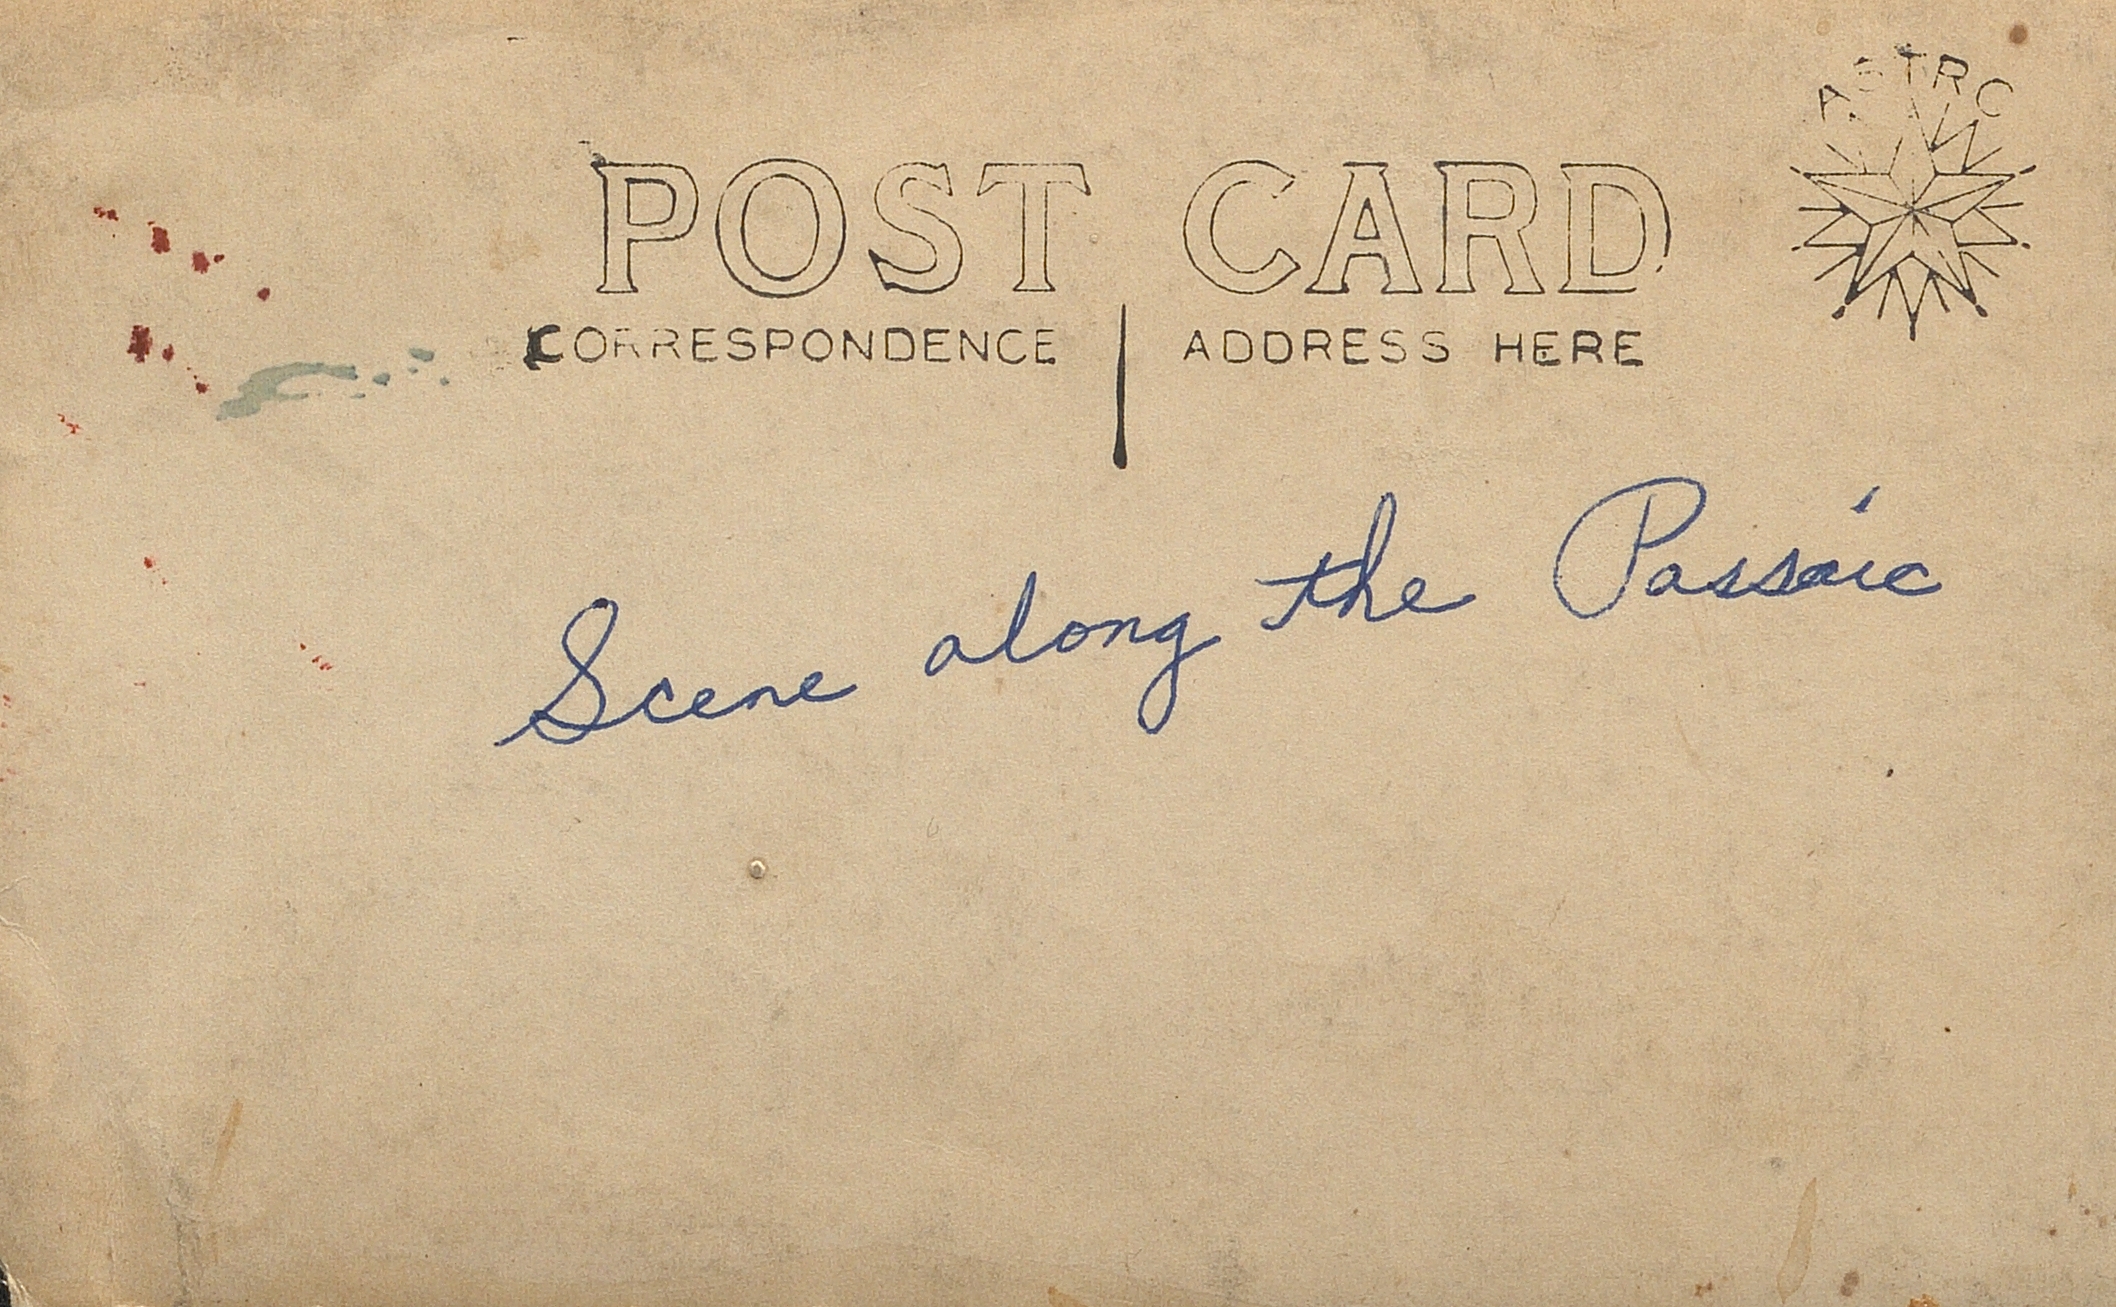 ASTRO
POST CARD
CORRESPONDENCE ADDRESS HERE
Scene along the Passaic